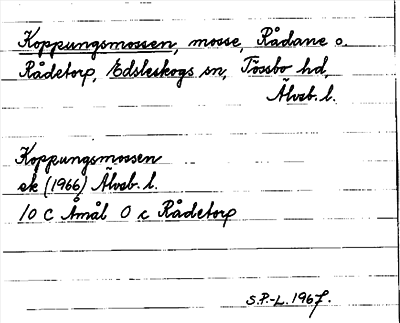 Koppungsmossen, mosse, Rådane o.
Rådetorp, Edsleskogs sn, Tössbo hd,
Älvsb. l.
Koppungsmossen
ek (1966) Älvsb. l.
10 C Åmål O c Rådetorp
S.P.-L. 1967.